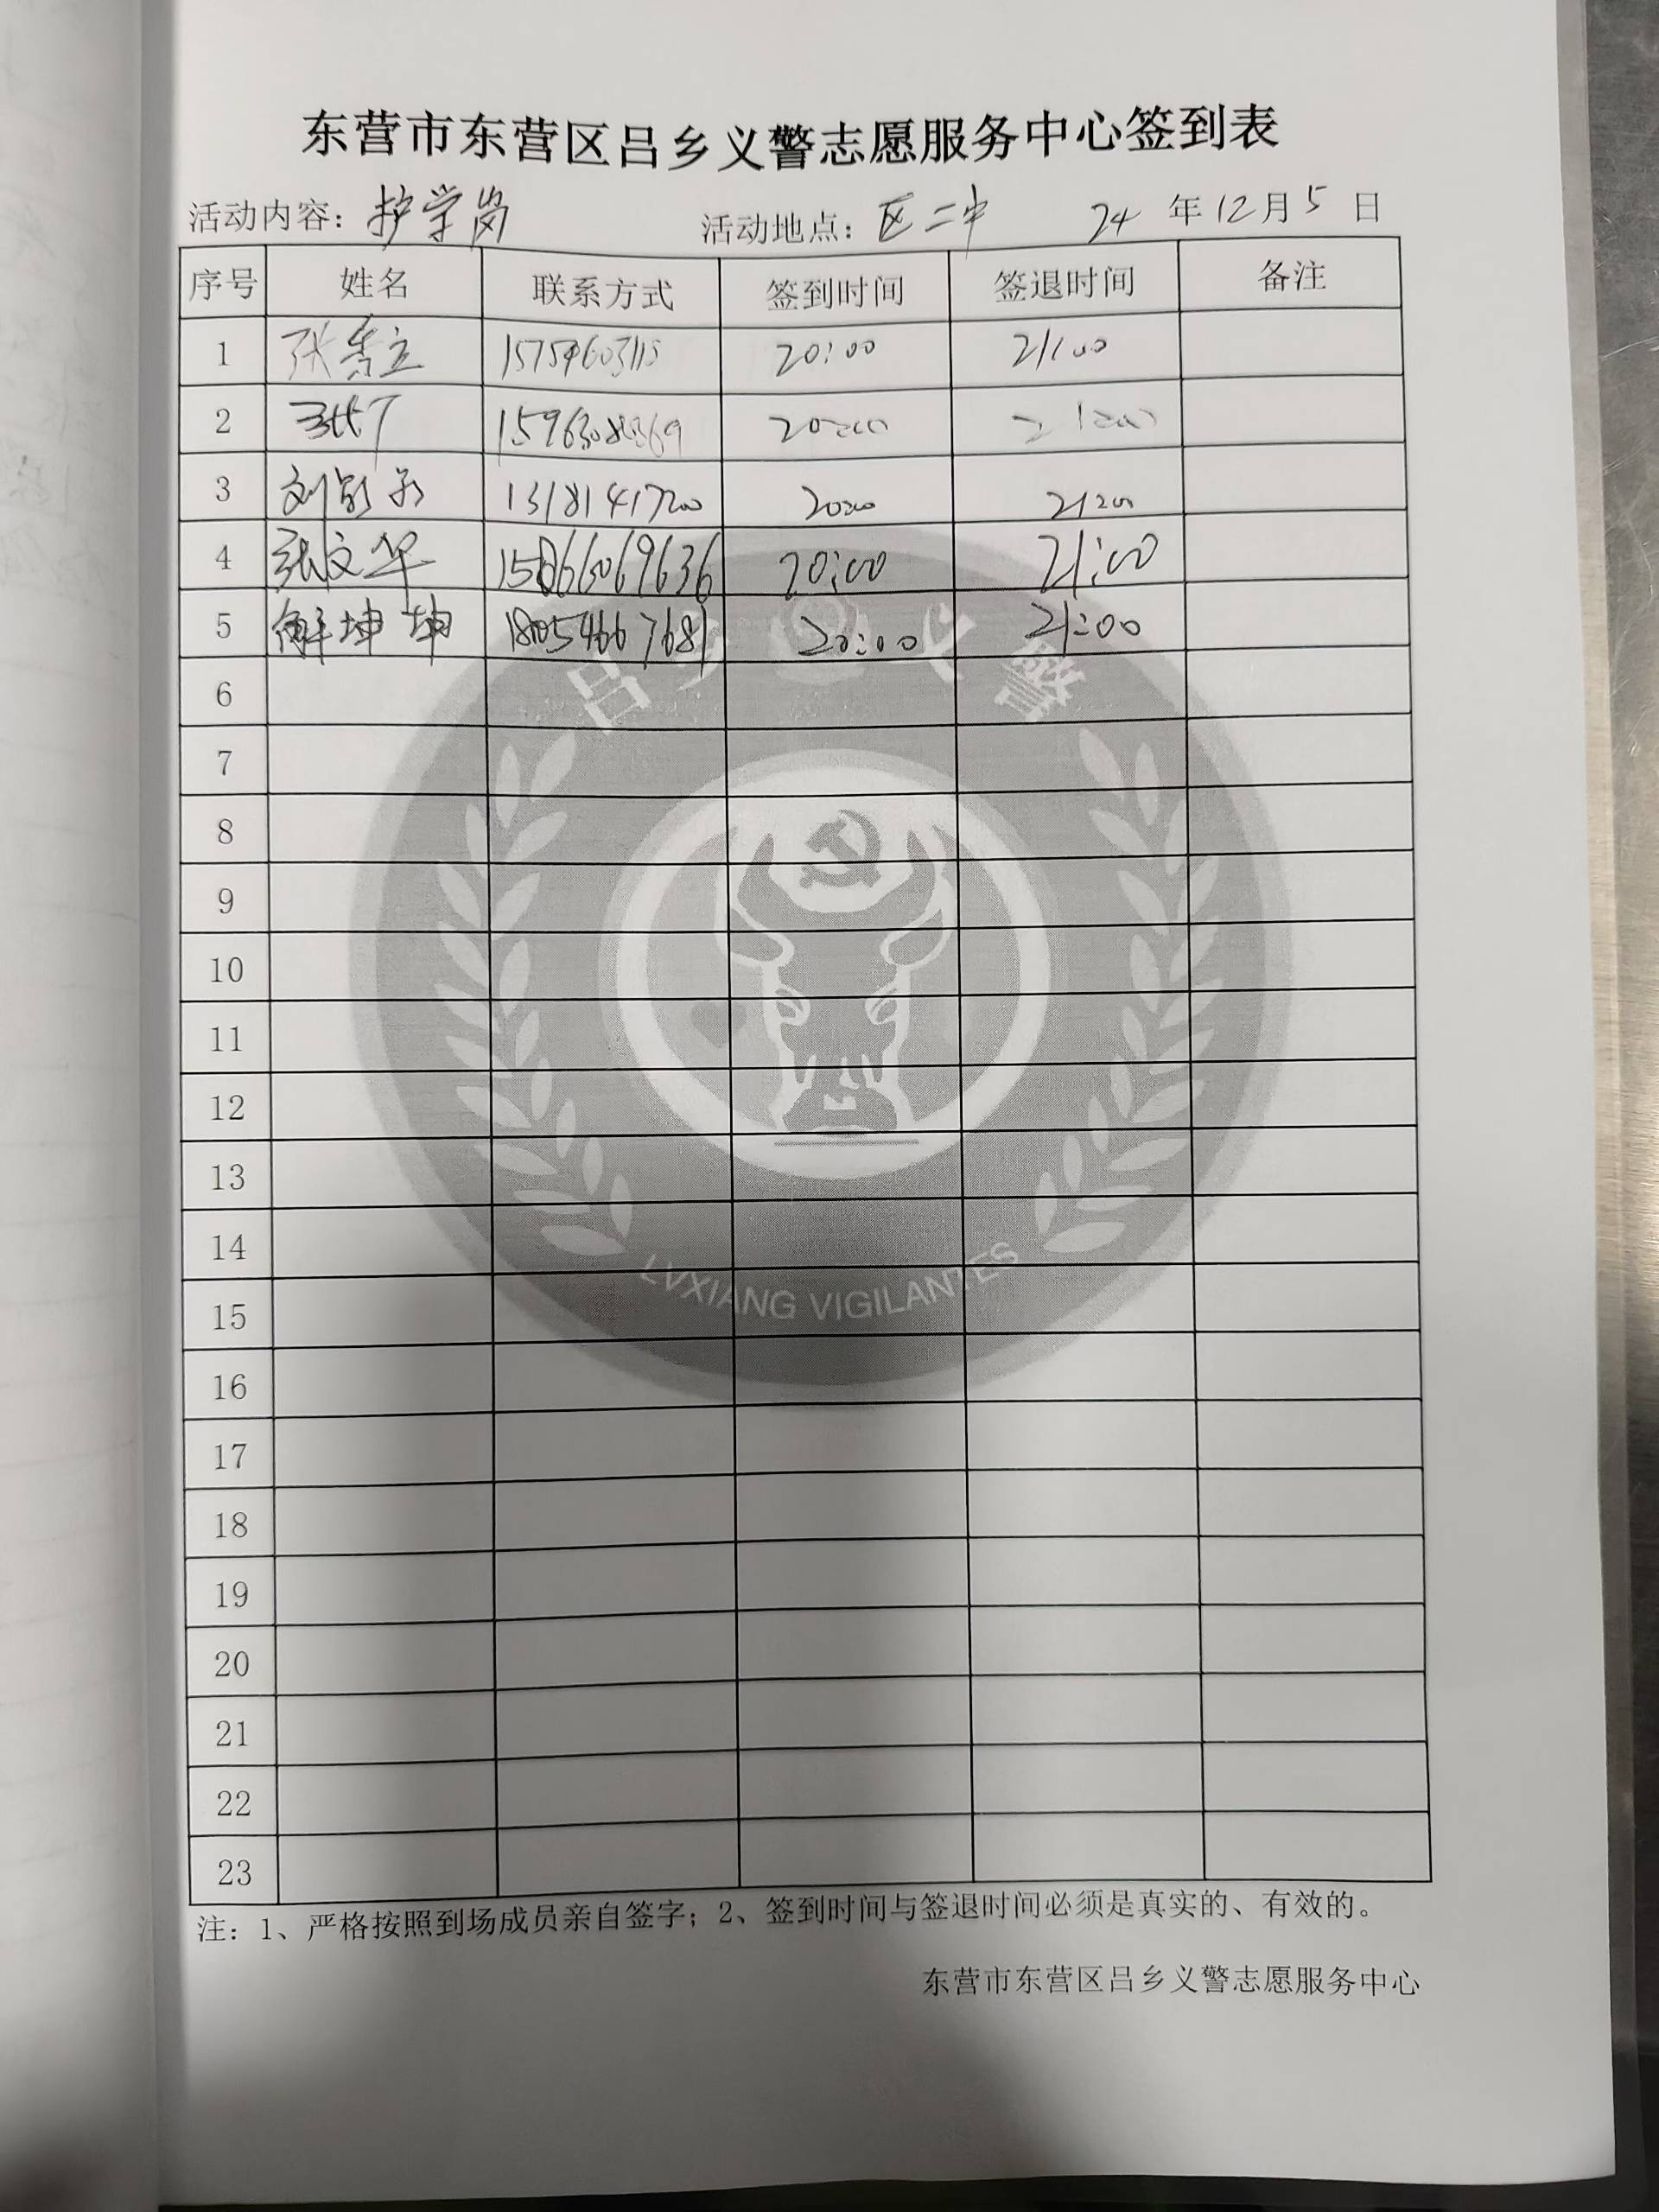 东营市东营区吕乡义警志愿服务中心签到表
活动内容：护学岗 活动地点：区二中 24年12月5日
序号 姓名 联系方式 签到时间 签退时间 备注
1 张秀立 20:00 21:00
2 20:00 21:00
3 刘 20:00 21:00
4 张文华 15866069636 20:00 21:00
5 解坤坤 18054667681 20:00 21:00
6
7
8
9
10
11
12
13
14
15
16
17
18
19
20
21
22
23
吕乡义警
LVXIANG VIGILANTES
注：1、严格按照到场成员亲自签字；2、签到时间与签退时间必须是真实的、有效的。
东营市东营区吕乡义警志愿服务中心